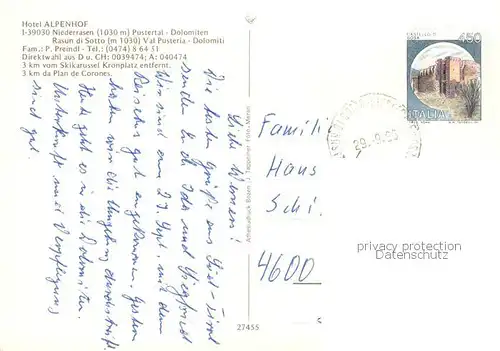 Hotel ALPENHOF
I-39030 Niederrasen (1030 m) Pustertal - Dolomiten
Rasun di Sotto (m 1030) Val Pusteria - Dolomiti
Fam.: P. Prendl - Tel.: (0474) 8 64 51
Direktwahl aus D u. CH: 0039474; A: 040474
3 km vom Skikarussel Kronplatz entfernt.
3 km da Plan de Corones.
Liebe
Die besten Grüße aus Süd-Tirol
senden Ida und Siegfried
Wir sind am 27. Sept. mit dem
Reisebus gut angekommen. Gestern
haben wir die Umgebung
Heute geht es in die Dolomiten.
Unterkunft und Verpflegung
sind gut.
27455
450
ITALIA
29.9.
Famili
Hans
Schi.
4600
privacy protection
Datenschutz